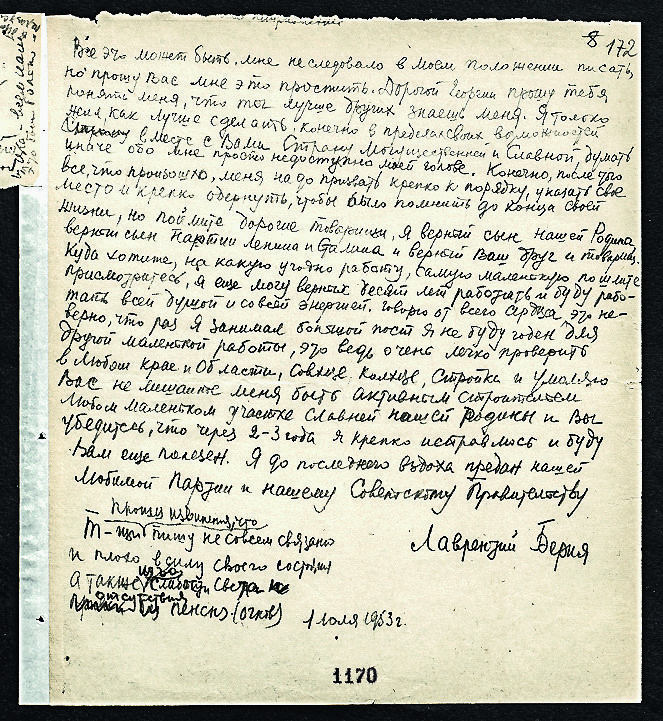 8 172
Все это может быть, мне не следовало в моем положении писать,
но прошу Вас мне это простить. Дорогой Георгий прошу тебя
понять меня, что ты лучше других знаешь меня. Я только
жил, как лучше сделать, конечно в пределах своих возможностей
вместе с Вами Страну Могущественной и Славной, думать
иначе обо мне просто недоступно моей голове. Конечно, после того
все, что произошло, меня надо призвать крепко к порядку, указать свое
место и крепко одернуть, чтобы было помнить до конца своей
жизни, но поймите дорогие товарищи, я верный сын нашей Родины,
верный сын партии Ленина и Сталина и верный Ваш друг и товарищ.
Куда хотите, на какую угодно работу, самую маленькую пошлите
присмотритесь, я еще могу верных десять лет работать и буду рабо-
тать всей душой и со всей энергией. Говорю от всего сердца, это не-
верно, что раз я занимал большой пост я не буду годен для
другой маленкой работы, это ведь очень легко проверить
в любом крае и Области, Совхозе, Колхозе, Стройке и Умоляю
Вас не лишайте меня быть активным строителем
любом маленком участке славной нашей Родины и Вы
убедитесь, что через 2-3 года я крепко исправлюсь и буду
Вам еще полезен. Я до последнего вздоха предан нашей
любимой Партии и нашему Советскому Правительству
Прошу извинения, что
Т-щи пишу не совсем связано
и плохо в силу своего состояния
Лаврентий Берия
а также из за слабости света и
отсутствия пенсне (очков)
1 юля 1953 г.
1170